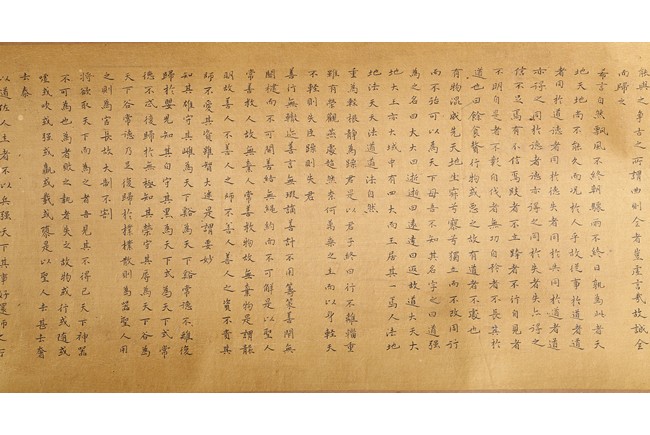 能與之爭古之所謂曲則全者豈虛言哉故誠全
而歸之
希言自然飄風不終朝驟雨不終日孰為此者天
地天地尚不能久而況於人乎故從事於道者道
者同於道德者同於德失者同於失同於道者道
亦得之同於德者德亦得之同於失者失亦得之
信不足焉有不信跂者不立跨者不行自見者
不明自是者不彰自伐者無功自矜者不長其於
道也曰餘食贅行物或惡之故有道者不處也
有物混成先天地生寂兮寥兮獨立而不改周行
而不殆可以為天下母吾不知其名字之曰道強
為之名曰大大曰逝逝曰遠遠曰返故道大天大
地大王亦大域中有四大而王居其一焉人法地
地法天天法道道法自然
重為輕根靜為躁君是以君子終日行不離輜重
雖有榮觀燕處超然奈何萬乘之主而以身輕天
下輕則失臣躁則失君
善行無轍迹善言無瑕讁善計不用籌策善閉無
關楗而不可開善結無繩約而不可解是以聖人
常善救人故無棄人常善救物故無棄物是謂襲
明故善人不善人之師不善人善人之資不貴其
師不愛其資雖智大迷是謂要妙
知其雄守其雌為天下谿為天下谿常德不離復
歸於嬰兒知其白守其黑為天下式為天下式常
德不忒復歸於無極知其榮守其辱為天下谷為
天下谷常德乃足復歸於樸樸散則為器聖人用
之則為官長故大制不割
將欲取天下而為之者吾見其不得已天下神器
不可為也為者敗之執者失之故物或行或隨或
噓或吹或強或羸或載或隳是以聖人去甚去奢
去泰
以道佐人主者不以兵強天下其事好還師之所